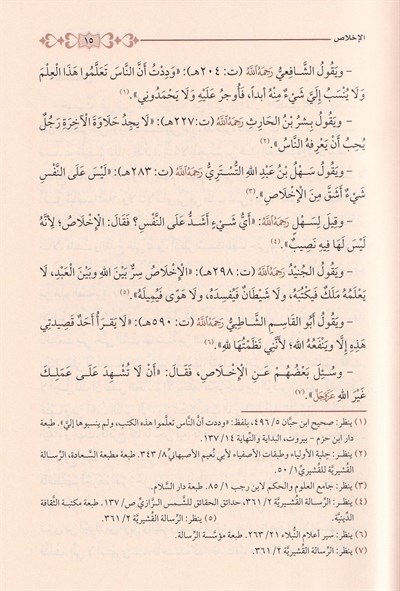 الإخلاص
١٥
– ويَقُولُ الشَّافِعِيُّ رَحِمَهُ اللَّهُ (ت: ٢٠٤هـ): «وَدِدْتُ أَنَّ النَّاسَ تَعَلَّمُوا هَذَا العِلْمَ
وَلَا يُنْسَبُ إِلَيَّ شَيْءٌ مِنْهُ أبداً، فَأُوجرُ عَلَيْهِ وَلَا يَحْمَدُونِي». (١)
– ويَقُولُ بِشرُ بْنُ الحَارِثِ رَحِمَهُ اللَّهُ (ت:٢٢٧هـ): «لَا يجدُ حَلَاوَةَ الْآخِرَةِ رَجُلٌ
يُحِبُّ أَنْ يَعْرِفهُ النَّاسُ». (٢)
– ويَقُولُ سَهْلُ بْنُ عَبْدِ اللهِ التُّسْتَرِيُّ رَحِمَهُ اللَّهُ (ت: ٢٨٣هـ): «لَيْسَ عَلَى النَّفْسِ
شَيْءٌ أَشَقَّ مِنَ الْإِخْلَاصِ». (٣)
– وقِيلَ لِسَهْلٍ رَحِمَهُ اللَّهُ: «أَيُّ شَيْءٍ أَشَدُّ عَلَى النَّفْسِ؟ فَقَالَ: الْإِخْلَاصُ؛ لِأَنَّهُ
لَيْسَ لَهَا فِيهِ نَصِيبٌ». (٤)
– ويَقُولُ الجُنَيْدُ رَحِمَهُ اللَّهُ (ت: ٢٩٨هـ): «الْإِخْلَاصُ سِرٌّ بَيْنَ اللهِ وَبَيْنَ الْعَبْدِ، لَا
يَعْلَمُهُ مَلَكٌ فَيَكْتُبَهُ، وَلَا شَيْطَانٌ فَيُفْسِدَهُ، وَلَا هَوًى فَيُمِيلَهُ». (٥)
– ويَقُولُ أَبُو القَاسِمِ الشَّاطِبِيُّ رَحِمَهُ اللَّهُ (ت: ٥٩٠هـ): «لَا يَقرَأُ أَحَدٌ قَصِيدتِي
هَذِهِ إِلَّا ويَنْفَعُهُ اللهُ؛ لِأَنَّنِي نَظَمْتُهَا للهِ». (٦)
– وَسُئِلَ بَعْضُهُمْ عَنِ الْإِخْلَاصِ، فَقَالَ: «أَنْ لَا تُشْهِدَ عَلَى عَمَلِكَ
غَيْرَ اللهِ عَزَّ وَجَلَّ». (٧)
(١) ينظر: صحيح ابن حبَّان ٤٩٦/٥، بلفظ: «وددت أنَّ النَّاس تعلَّموا هذه الكتب، ولم ينسبوها إليَّ». طبعة
دار ابن حزم – بيروت، البداية والنهاية ١٣٧/١٤.
(٢) ينظر: حلية الأولياء وطبقات الأصفياء لأبي نُعيم الأصبهانيِّ ٣٤٣/٨. طبعة مطبعة السَّعادة، الرِّسالة
القُشيريَّة للقُشيريِّ ٥٠/١.
(٣) ينظر: جامع العلوم والحكم لابن رجب ٨٥/١. طبعة دار السَّلام.
(٤) ينظر: الرِّسالة القُشيريَّة ٣٦١/٢، حدائق الحقائق للشَّمس الرَّازيِّ ص/١٣٧. طبعة مكتبة الثَّقافة
الدِّينيَّة. (٥) ينظر: الرِّسالة القُشيريَّة ٣٦١/٢.
(٦) ينظر: سير أعلام النُّبلاء ٢٦٣/٢١. طبعة مؤسَّسة الرِّسالة.
(٧) ينظر: الرِّسالة القُشيريَّة ٣٦١/٢.